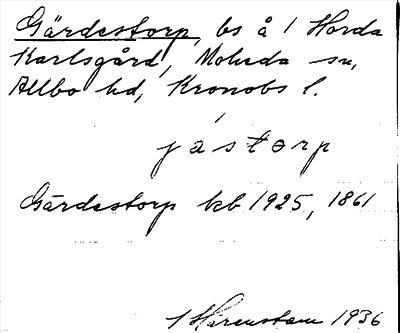 Gärdestorp, bs å 1 Horda
Karlsgård, Moheda sn,
Allbo hd, Kronobs l.
jastorp
Gärdestorp kb 1925, 1861
1936